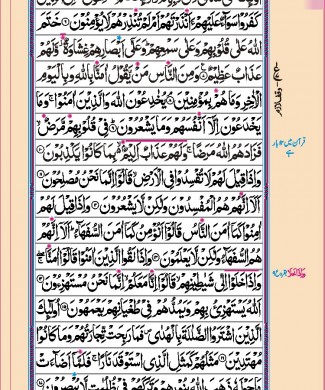 كَفَرُوا سَوَآءٌ عَلَيْهِمْ ءَاَنْذَرْتَهُمْ اَمْ لَمْ تُنْذِرْهُمْ لَا يُؤْمِنُوْنَ ۝ خَتَمَ
اللّٰهُ عَلٰى قُلُوْبِهِمْ وَعَلٰى سَمْعِهِمْ ؕ وَعَلٰٓى اَبْصَارِهِمْ غِشَاوَةٌ ؗ وَّلَهُمْ
عَذَابٌ عَظِيْمٌ ۝ وَمِنَ النَّاسِ مَنْ يَّقُوْلُ اٰمَنَّا بِاللّٰهِ وَبِالْيَوْمِ
الْاٰخِرِ وَمَا هُمْ بِمُؤْمِنِيْنَ ۝ يُخٰدِعُوْنَ اللّٰهَ وَالَّذِيْنَ اٰمَنُوْا ۚ وَمَا
يَخْدَعُوْنَ اِلَّآ اَنْفُسَهُمْ وَمَا يَشْعُرُوْنَ ۝ فِيْ قُلُوْبِهِمْ مَّرَضٌ ۙ
فَزَادَهُمُ اللّٰهُ مَرَضًا ۚ وَلَهُمْ عَذَابٌ اَلِيْمٌۢ ۙ بِمَا كَانُوْا يَكْذِبُوْنَ ۝
وَاِذَا قِيْلَ لَهُمْ لَا تُفْسِدُوْا فِي الْاَرْضِ ۙ قَالُوْٓا اِنَّمَا نَحْنُ مُصْلِحُوْنَ ۝
اَلَآ اِنَّهُمْ هُمُ الْمُفْسِدُوْنَ وَلٰكِنْ لَّا يَشْعُرُوْنَ ۝ وَاِذَا قِيْلَ لَهُمْ
اٰمِنُوْا كَمَآ اٰمَنَ النَّاسُ قَالُوْٓا اَنُؤْمِنُ كَمَآ اٰمَنَ السُّفَهَآءُ ؕ اَلَآ اِنَّهُمْ
هُمُ السُّفَهَآءُ وَلٰكِنْ لَّا يَعْلَمُوْنَ ۝ وَاِذَا لَقُوا الَّذِيْنَ اٰمَنُوْا قَالُوْٓا اٰمَنَّا ۚۖ
وَاِذَا خَلَوْا اِلٰى شَيٰطِيْنِهِمْ ۙ قَالُوْٓا اِنَّا مَعَكُمْ ۙ اِنَّمَا نَحْنُ مُسْتَهْزِءُوْنَ ۝
اَللّٰهُ يَسْتَهْزِئُ بِهِمْ وَيَمُدُّهُمْ فِيْ طُغْيَانِهِمْ يَعْمَهُوْنَ ۝ اُولٰٓئِكَ
الَّذِيْنَ اشْتَرَوُا الضَّلٰلَةَ بِالْهُدٰى ۪ فَمَا رَبِحَتْ تِّجَارَتُهُمْ وَمَا كَانُوْا
مُهْتَدِيْنَ ۝ مَثَلُهُمْ كَمَثَلِ الَّذِي اسْتَوْقَدَ نَارًا ۚ فَلَمَّآ اَضَآءَتْ
قرآن میں ۱۲ بار
ہے